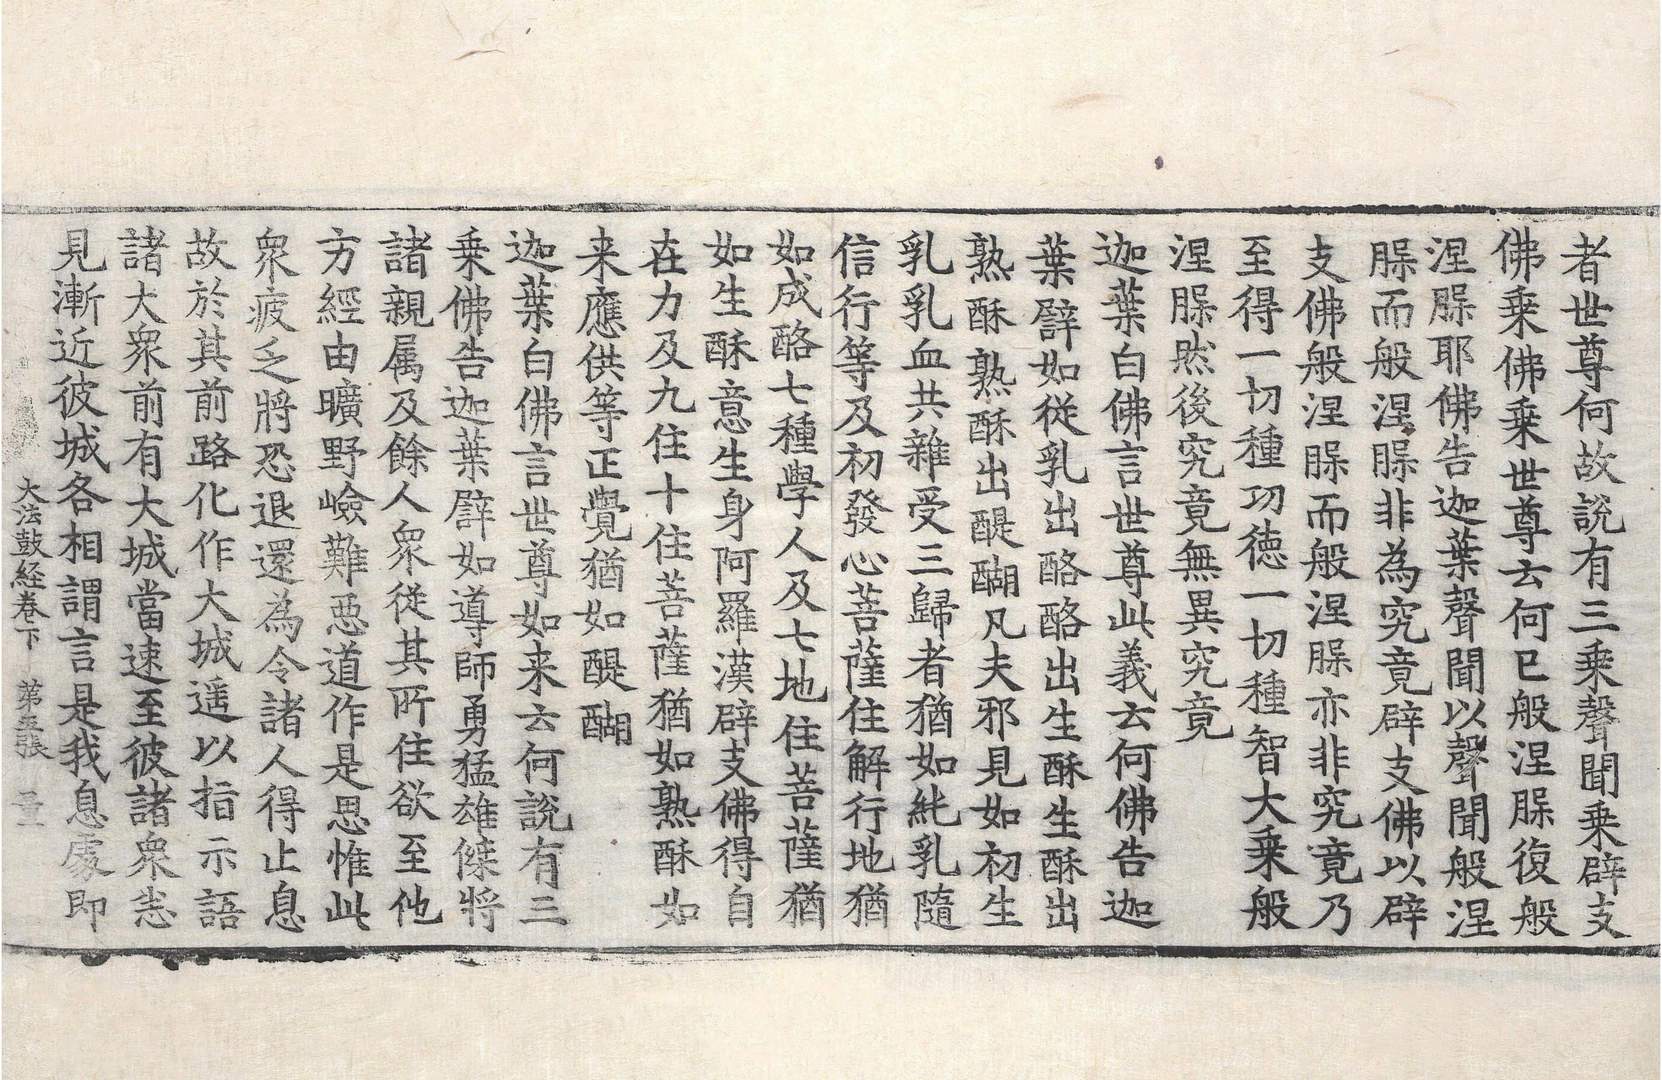 者世尊何故說有三乘聲聞乘辟支
佛乘佛乘世尊云何已般涅槃復般
涅槃耶佛告迦葉聲聞以聲聞般涅
槃而般涅槃非為究竟辟支佛以辟
支佛般涅槃而般涅槃亦非究竟乃
至得一切種功徳一切種智大乗般
涅槃然後究竟無異究竟
迦葉白佛言世尊此義云何佛告迦
葉譬如従乳出酪酪出生酥生酥出
熟酥熟酥出醍醐凡夫邪見如初生
乳乳血共雜受三歸者猶如純乳隨
信行等及初發心菩薩住解行地猶
如成酪七種學人及七地住菩薩猶
如生酥意生身阿羅漢辟支佛得自
在力及九住十住菩薩猶如熟酥如
来應供等正覺猶如醍醐
迦葉白佛言世尊如来云何說有三
乗佛告迦葉譬如導師勇猛雄傑將
諸親属及餘人衆從其所住欲至他
方經由曠野嶮難悪道作是思惟此
衆疲乏將恐退還為令諸人得止息
故於其前路化作大城遥以指示語
諸大衆前有大城當速至彼諸衆恙
見漸近彼城各相謂言是我息處即
大法鼓経卷下 第五張